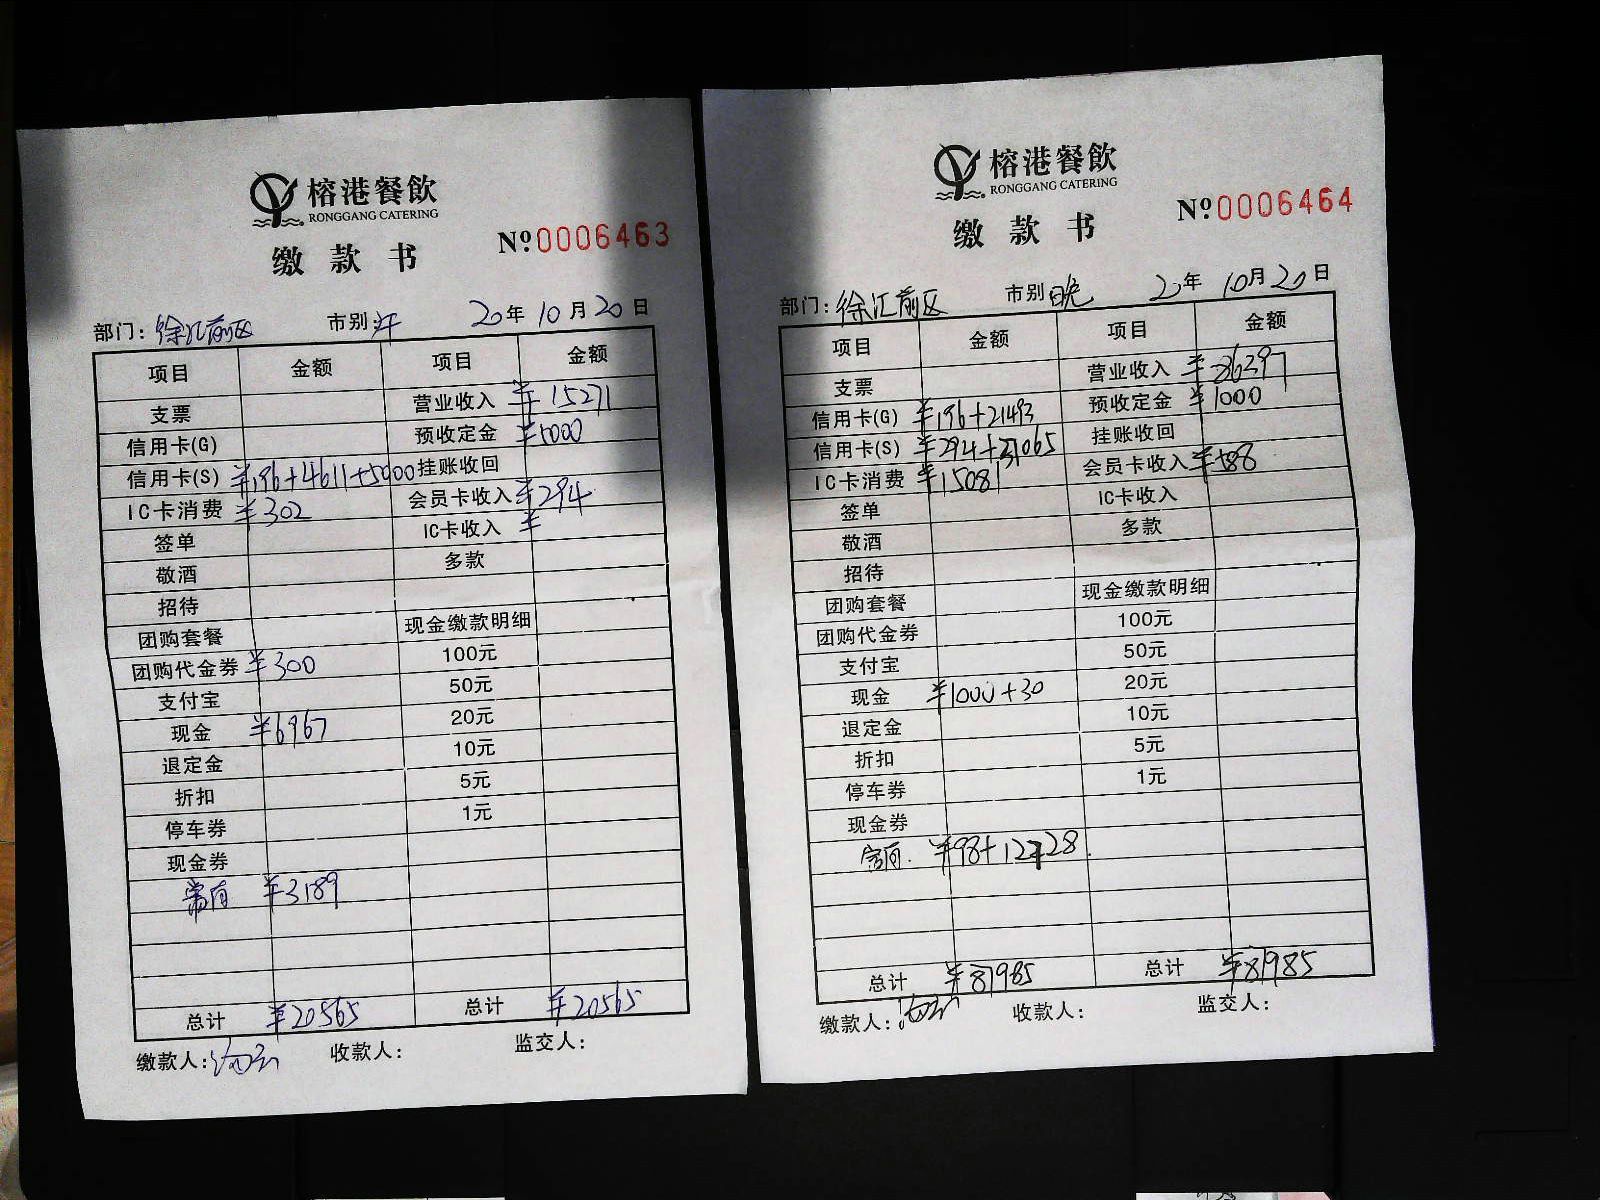 榕港餐飲
RONGGANG CATERING
缴款书
Nº 0006463
部门: 徐汇前区 市别: 午 20年 10月 20日
项目 金额 项目 金额
支票 营业收入 ¥15271
信用卡(G) 预收定金 ¥5000
信用卡(S) ¥196+4611+5000 挂账收回
IC卡消费 ¥302 会员卡收入 ¥294
签单 IC卡收入 ¥
敬酒 多款
招待
团购套餐 现金缴款明细
团购代金券 ¥300 100元
支付宝 50元
现金 ¥6967 20元
退定金 10元
折扣 5元
停车券 1元
现金券
¥3189
总计 ¥20565 总计 ¥20565
缴款人: 收款人: 监交人:
榕港餐飲
RONGGANG CATERING
缴款书
Nº 0006464
部门: 徐汇前区 市别 晚 20年 10月 20日
项目 金额 项目 金额
支票 营业收入 ¥80397
信用卡(G) ¥196+21493 预收定金 ¥1000
信用卡(S) ¥294+31065 挂账收回
IC卡消费 ¥15081 会员卡收入 ¥588
签单 IC卡收入
敬酒 多款
招待
团购套餐 现金缴款明细
团购代金券 100元
支付宝 50元
现金 ¥1000+30 20元
退定金 10元
折扣 5元
停车券 1元
现金券
¥98+12728
总计 ¥81985 总计 ¥81985
缴款人: 收款人: 监交人: